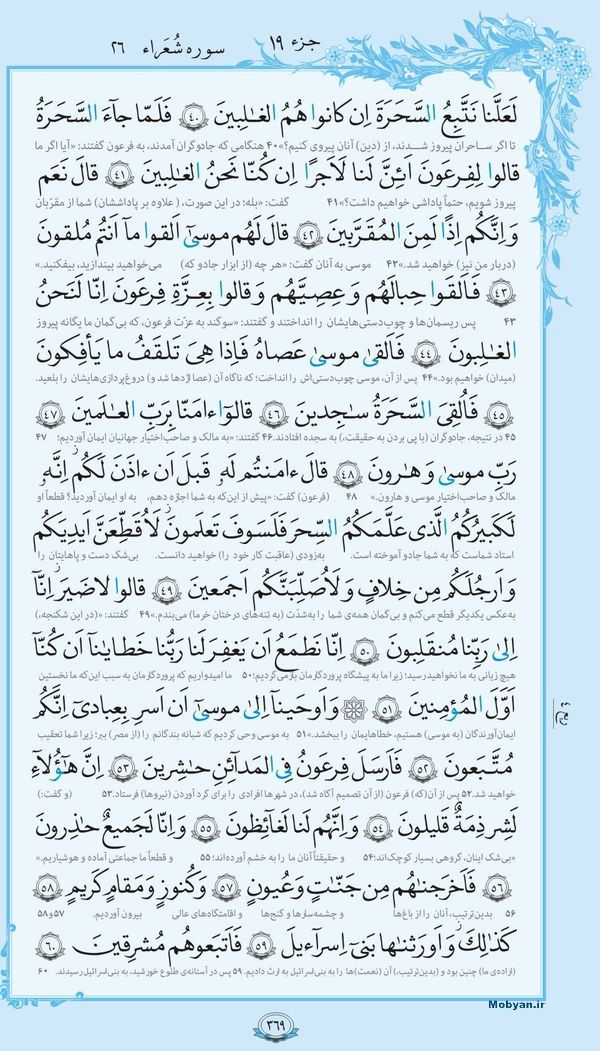 جزء ۱۹
سوره شُعَراء ۲۶
لَعَلَّنا نَتَّبِعُ السَّحَرَةَ اِن كانوا هُمُ الغـٰلِبينَ ﴿۴۰﴾ فَلَمّا جاۤءَ السَّحَرَةُ
تا اگر ساحران پیروز شـدند، از (دین) آنان پیروی کنیم؟»۴۰ هنگامی که جادوگران آمدند، به فرعون گفتند: «آیا اگر ما
قالوا لِفِرعَونَ اَئِنَّ لَنا لَاَجرًا اِن كُنّا نَحنُ الغـٰلِبينَ ﴿۴۱﴾ قالَ نَعَم
پیروز شویم، حتماً پاداشی خواهیم داشت؟»۴۱ گفت: «بله؛ در این صورت، (علاوه بر پاداشتان) شما از مقرّبان
وَ اِنَّكُم اِذًا لَمِنَ المُقَرَّبينَ ﴿۴۲﴾ قالَ لَهُم موسىٰٓ اَلقوا ماۤ اَنتُم مُلقونَ
(دربار من نیز) خواهید شد.»۴۲ موسی به آنان گفت: «هر چه (از ابزار جادو که) می‌خواهید بیندازید، بیفکنید.»
﴿۴۳﴾ فَاَلقَوا حِبالَهُم وَ عِصِيَّهُم وَ قالوا بِعِزَّةِ فِرعَونَ اِنّا لَنَحنُ
۴۳ پس ریسمان‌ها و چوب‌دستی‌هایشان را انداختند و گفتند: «سوگند به عزّت فرعون، که بی‌گمان ما یگانه پیروز
الغـٰلِبونَ ﴿۴۴﴾ فَاَلقىٰ موسىٰ عَصاهُ فَاِذا هِىَ تَلقَفُ ما يَأفِكونَ
(میدان) خواهیم بود.»۴۴ پس از آن، موسی چوب‌دستی‌اش را انداخت؛ که ناگاه آن (عصا اژدها شد و) دروغ‌پردازی‌هایشان را بلعید.
﴿۴۵﴾ فَاُلقِىَ السَّحَرَةُ سـٰجِدينَ ﴿۴۶﴾ قالوۤا ءامَنّا بِرَبِّ العـٰلَمينَ ﴿۴۷﴾
۴۵ در نتیجه، جادوگران (با پی بردن به حقیقت،) به سجده افتادند.۴۶ گفتند: «به مالک و صاحب‌اختیار جهانیان ایمان آوردیم؛ ۴۷
رَبِّ موسىٰ وَ هـٰرونَ ﴿۴۸﴾ قالَ ءامَنتُم لَهٗ قَبلَ اَن ءاذَنَ لَكُم اِنَّهٗ
مالک و صاحب‌اختیار موسی و هارون.» ۴۸ (فرعون) گفت: «پیش از این‌که به شما اجازه دهم، به او ایمان آوردید؟ قطعاً او
لَكَبيرُكُمُ الَّذى عَلَّمَكُمُ السِّحرَ فَلَسَوفَ تَعلَمونَ لَاُقَطِّعَنَّ اَيدِيَكُم
استاد شماست که به شما جادو آموخته است. به‌زودی (عاقبت کار خود را) خواهید دانست. بی‌شک دست و پاهایتان را
وَ اَرجُلَكُم مِن خِلافٍ وَ لَاُصَلِّبَنَّكُم اَجمَعينَ ﴿۴۹﴾ قالوا لا ضَيرَ اِنّاۤ
به‌عکس یکدیگر قطع می‌کنم و بی‌گمان همه‌ی شما را به‌شدّت (به تنه‌های درختان خرما) می‌بندم.»۴۹ گفتند: «(در این شکنجه،)
اِلىٰ رَبِّنا مُنقَلِبونَ ﴿۵۰﴾ اِنّا نَطمَعُ اَن يَغفِرَ لَنا رَبُّنا خَطايـٰناۤ اَن كُنّاۤ
هیچ زیانی به ما نخواهید رسید؛ زیرا ما به پیشگاه پروردگارمان بازمی‌گردیم؛۵۰ ما امیدواریم که پروردگارمان به سبب این‌که ما نخستین
اَوَّلَ المُؤمِنينَ ﴿۵۱﴾ وَ اَوحَيناۤ اِلىٰ موسىٰۤ اَن اَسرِ بِعِبادىۤ اِنَّكُم
ایمان‌آورندگان (به موسی) هستیم، خطاهایمان را ببخشد.»۵۱ به موسی وحی کردیم که شبانه بندگانم را (از مصر) ببر؛ زیرا شما تعقیب
مُتَّبَعونَ ﴿۵۲﴾ فَاَرسَلَ فِرعَونُ فِى المَداۤئِنِ حـٰشِرينَ ﴿۵۳﴾ اِنَّ هـٰۤؤُلاۤءِ
خواهید شد.۵۲ پس از آن‌(که) فرعون (از آن تصمیم آگاه شد)، در شهرها افرادی را برای گرد آوردن (نیروها) فرستاد.۵۳ (و گفت:)
لَشِرذِمَةٌ قَليلونَ ﴿۵۴﴾ وَ اِنَّهُم لَنا لَغاۤئِظونَ ﴿۵۵﴾ وَ اِنّا لَجَميعٌ حـٰذِرونَ
«بی‌شک اینان، گروهی بسیار کوچک‌اند؛۵۴ و حقیقتاً آنان ما را به خشم آورده‌اند؛ ۵۵ و قطعاً ما جماعتی آماده و هوشیاریم.»
﴿۵۶﴾ فَاَخرَجنـٰهُم مِن جَنّـٰتٍ وَ عُيونٍ ﴿۵۷﴾ وَ كُنوزٍ وَ مَقامٍ كَريمٍ ﴿۵۸﴾
۵۶ بدین‌ترتیب، آنان را از باغ‌ها و چشمه‌سارها و گنج‌ها و اقامتگاه‌های عالی بیرون آوردیم. ۵۷و۵۸
كَذٰلِكَ وَ اَورَثنـٰها بَنىۤ اِسرآءيلَ ﴿۵۹﴾ فَاَتبَعوهُم مُشرِقينَ ﴿۶۰﴾
(اراده‌ی ما) چنین بود و (بدین‌ترتیب،) آن (نعمت)ها را به بنی‌اسرائیل به ارث دادیم.۵۹ پس در آستانه‌ی طلوع خورشید، به بنی‌اسرائیل رسیدند. ۶۰
۳۶۹
Mobyan.ir